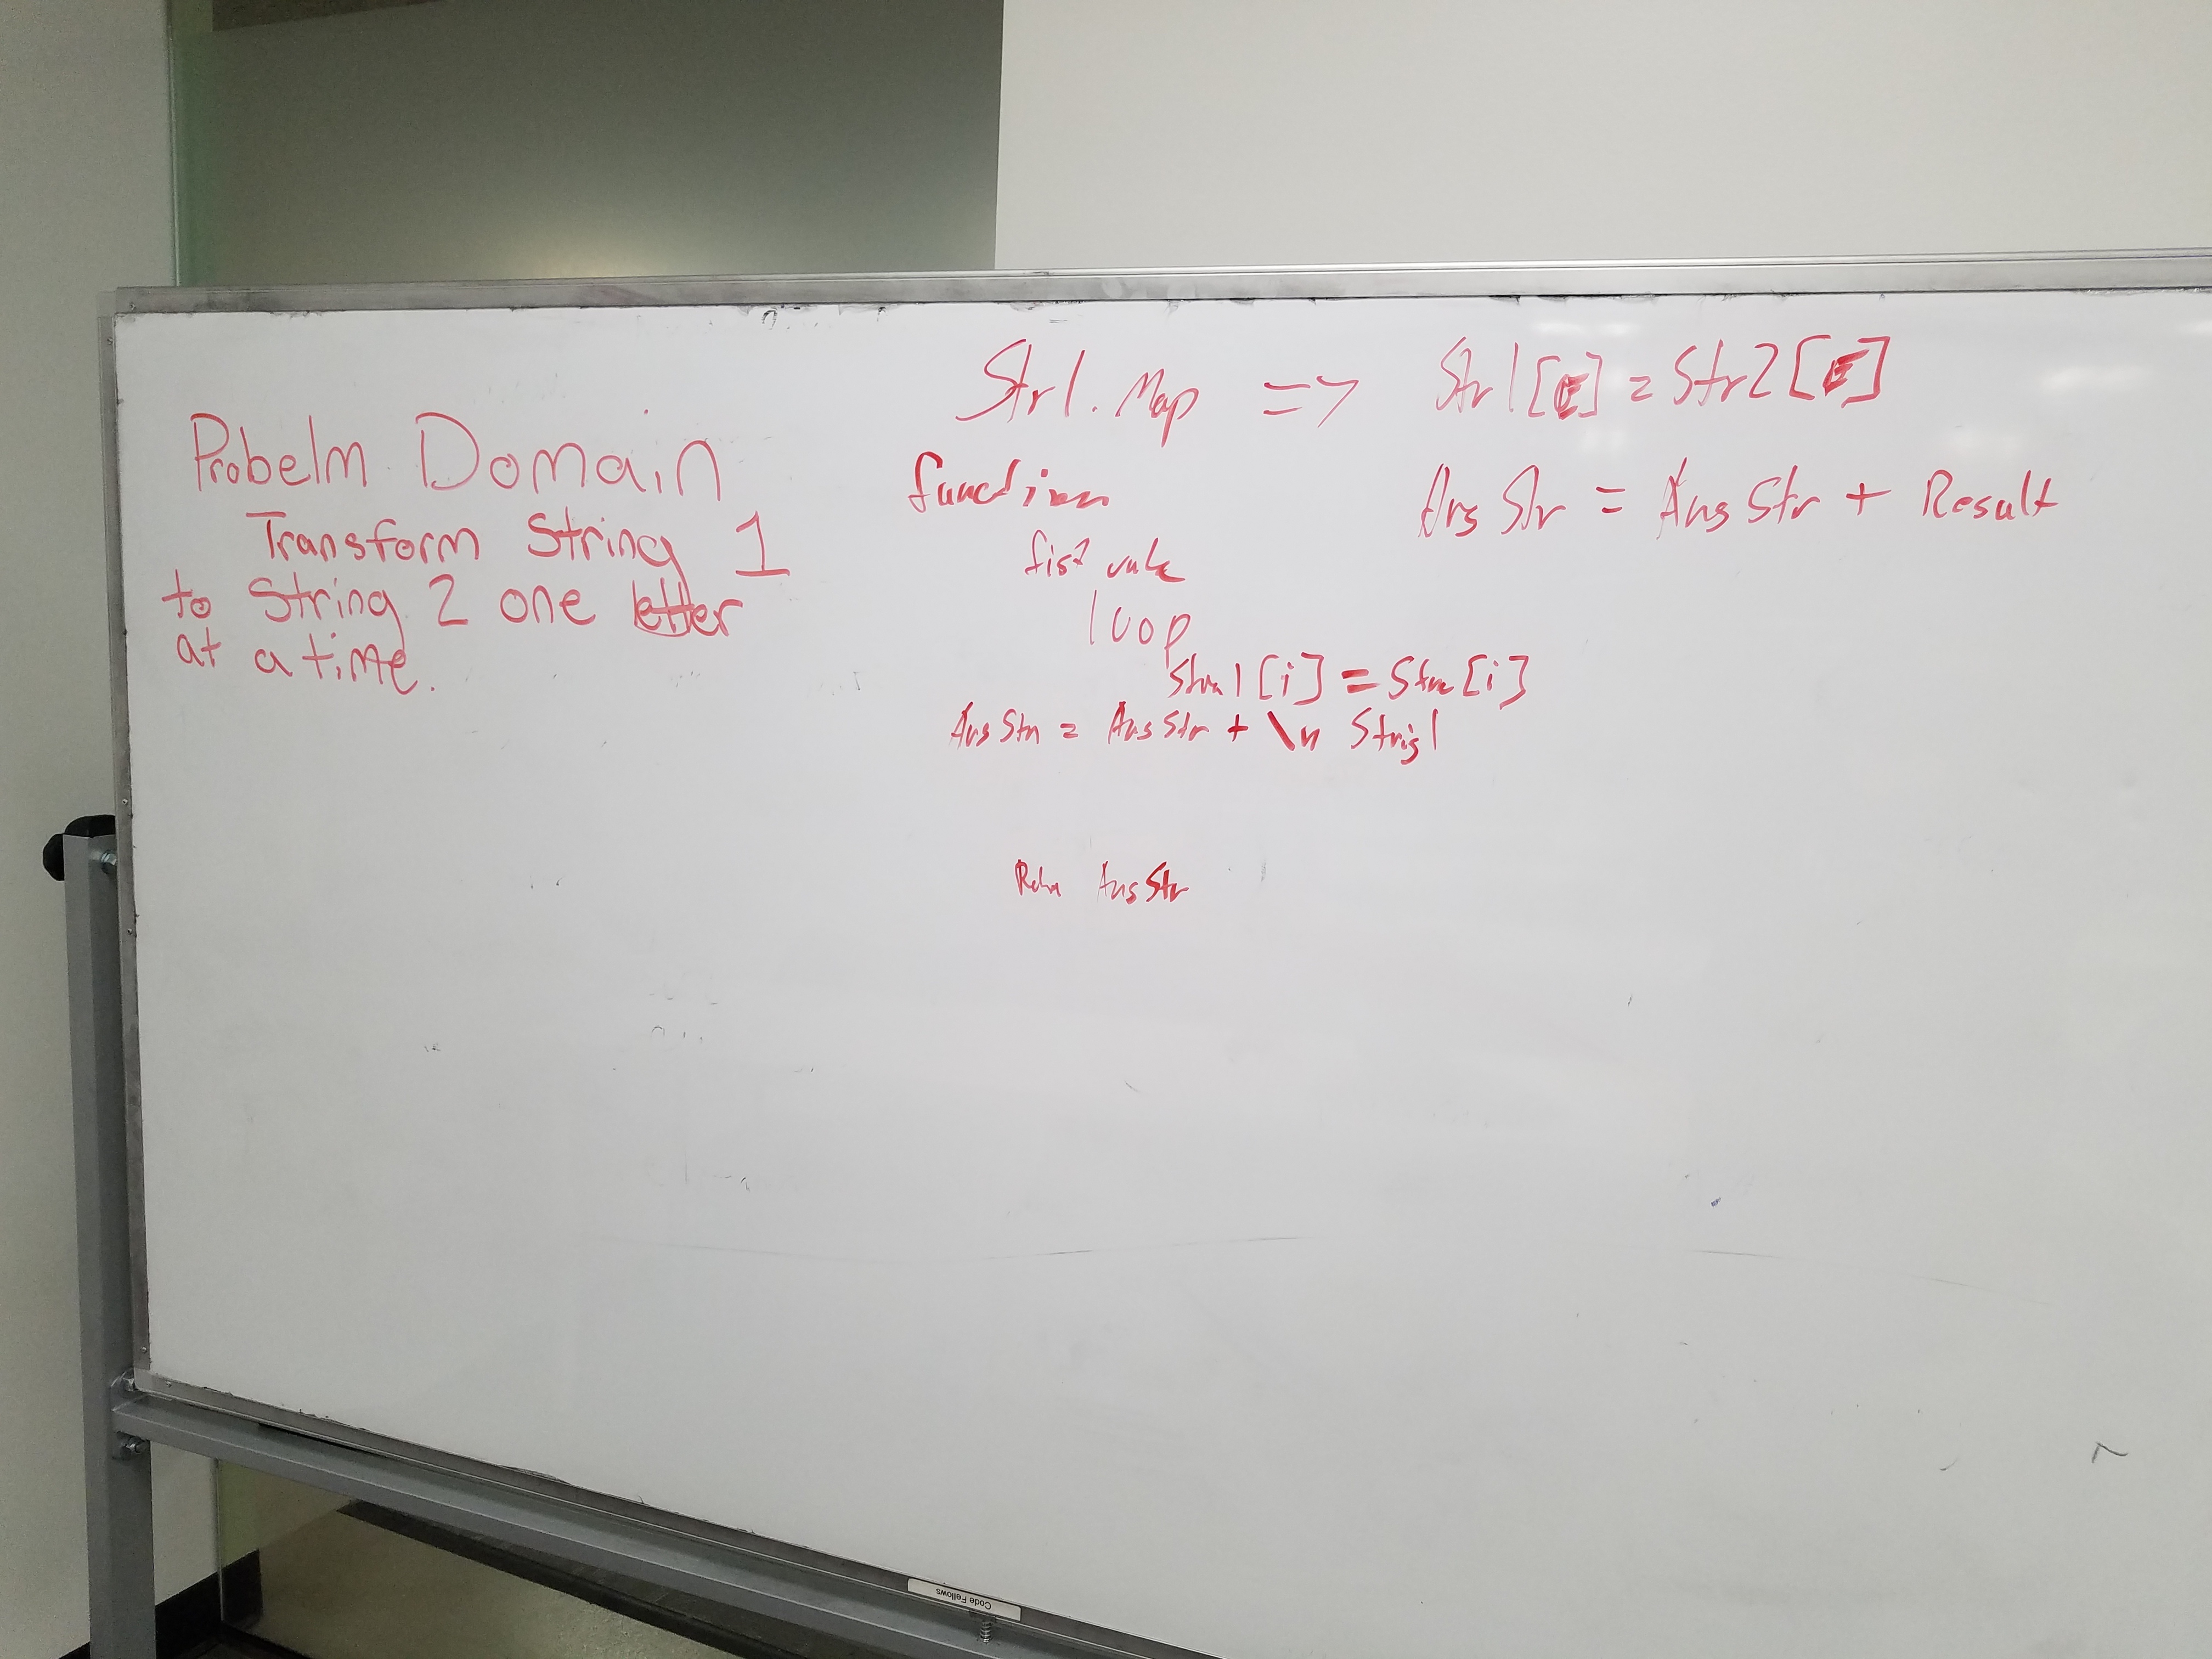 Probelm Domain
Transform String 1
to String 2 one letter
at a time.
Str1. Map => Str1[E] = Str2[E]
Ans Str = Ans Str + Result
function
loop
[i] = [i]
Ans Str = Ans Str + \n
Ans Str
Code Fellows